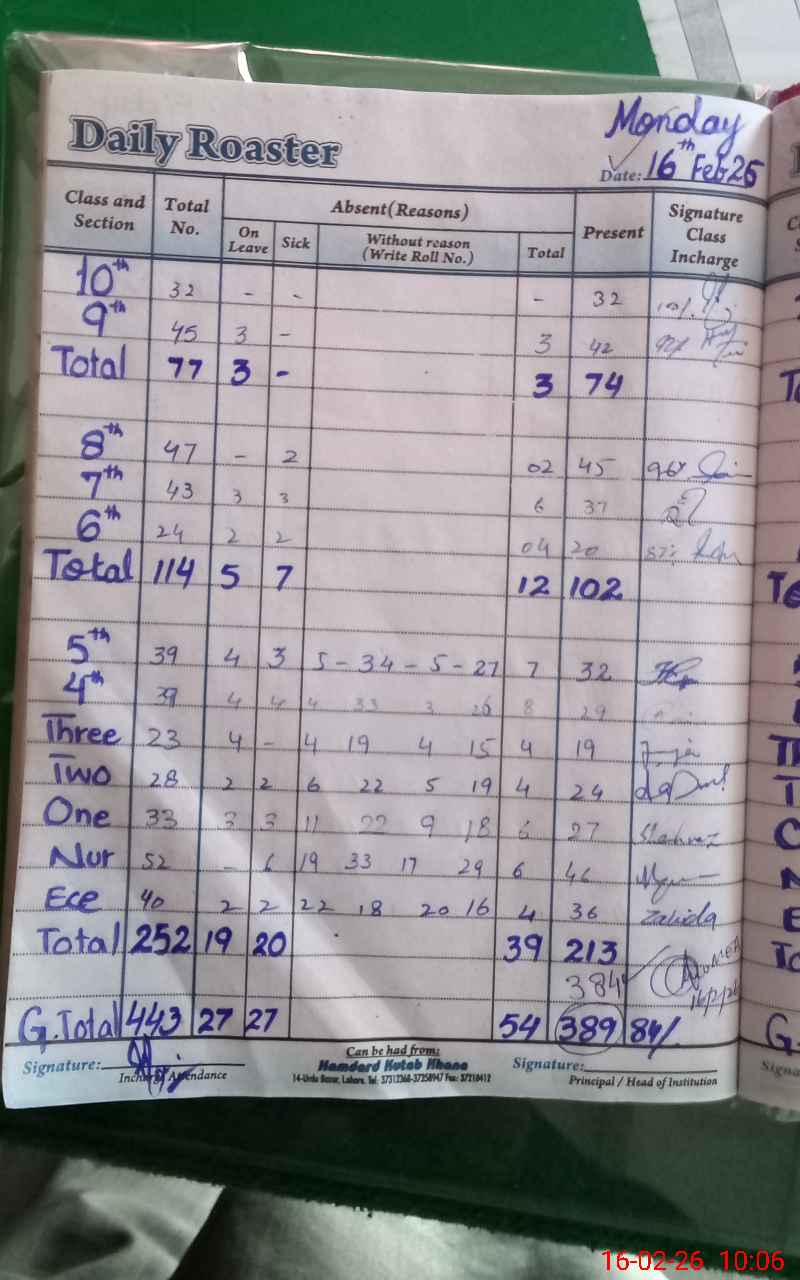 Monday
Daily Roaster
Date: 16th Feb, 26
Class and Section Total No. Absent(Reasons) Present Signature Class Incharge
On Leave Sick Without reason (Write Roll No.) Total
10th 32 - - - 32
9th 45 3 - 3 42
Total 77 3 - 3 74
8th 47 - 2 02 45 96%
7th 43 3 3 6 37
6th 24 2 2 04 20
Total 114 5 7 12 102
5th 39 4 3 5 - 34 - 5 - 27 7 32
4th 39 4 4 4 33 3 26 8 29
Three 23 4 - 4 19 4 15 4 19
Two 28 2 2 6 22 5 19 4 24
One 33 3 3 11 22 9 18 6 27 Shahnaz
Nur 52 - 6 19 33 17 29 6 46
Ece 40 2 2 22 18 20 16 4 36 Zahida
Total 252 19 20 39 213
384
G.Total 443 27 27 54 389 84%
Signature: Can be had from: Signature:
Incharge Attendance Hamdard Kutab Khana
14-Urdu Bazar, Lahore. Tel: 37312368-37258947 Fax: 37210412 Principal / Head of Institution
16-02-26 10:06